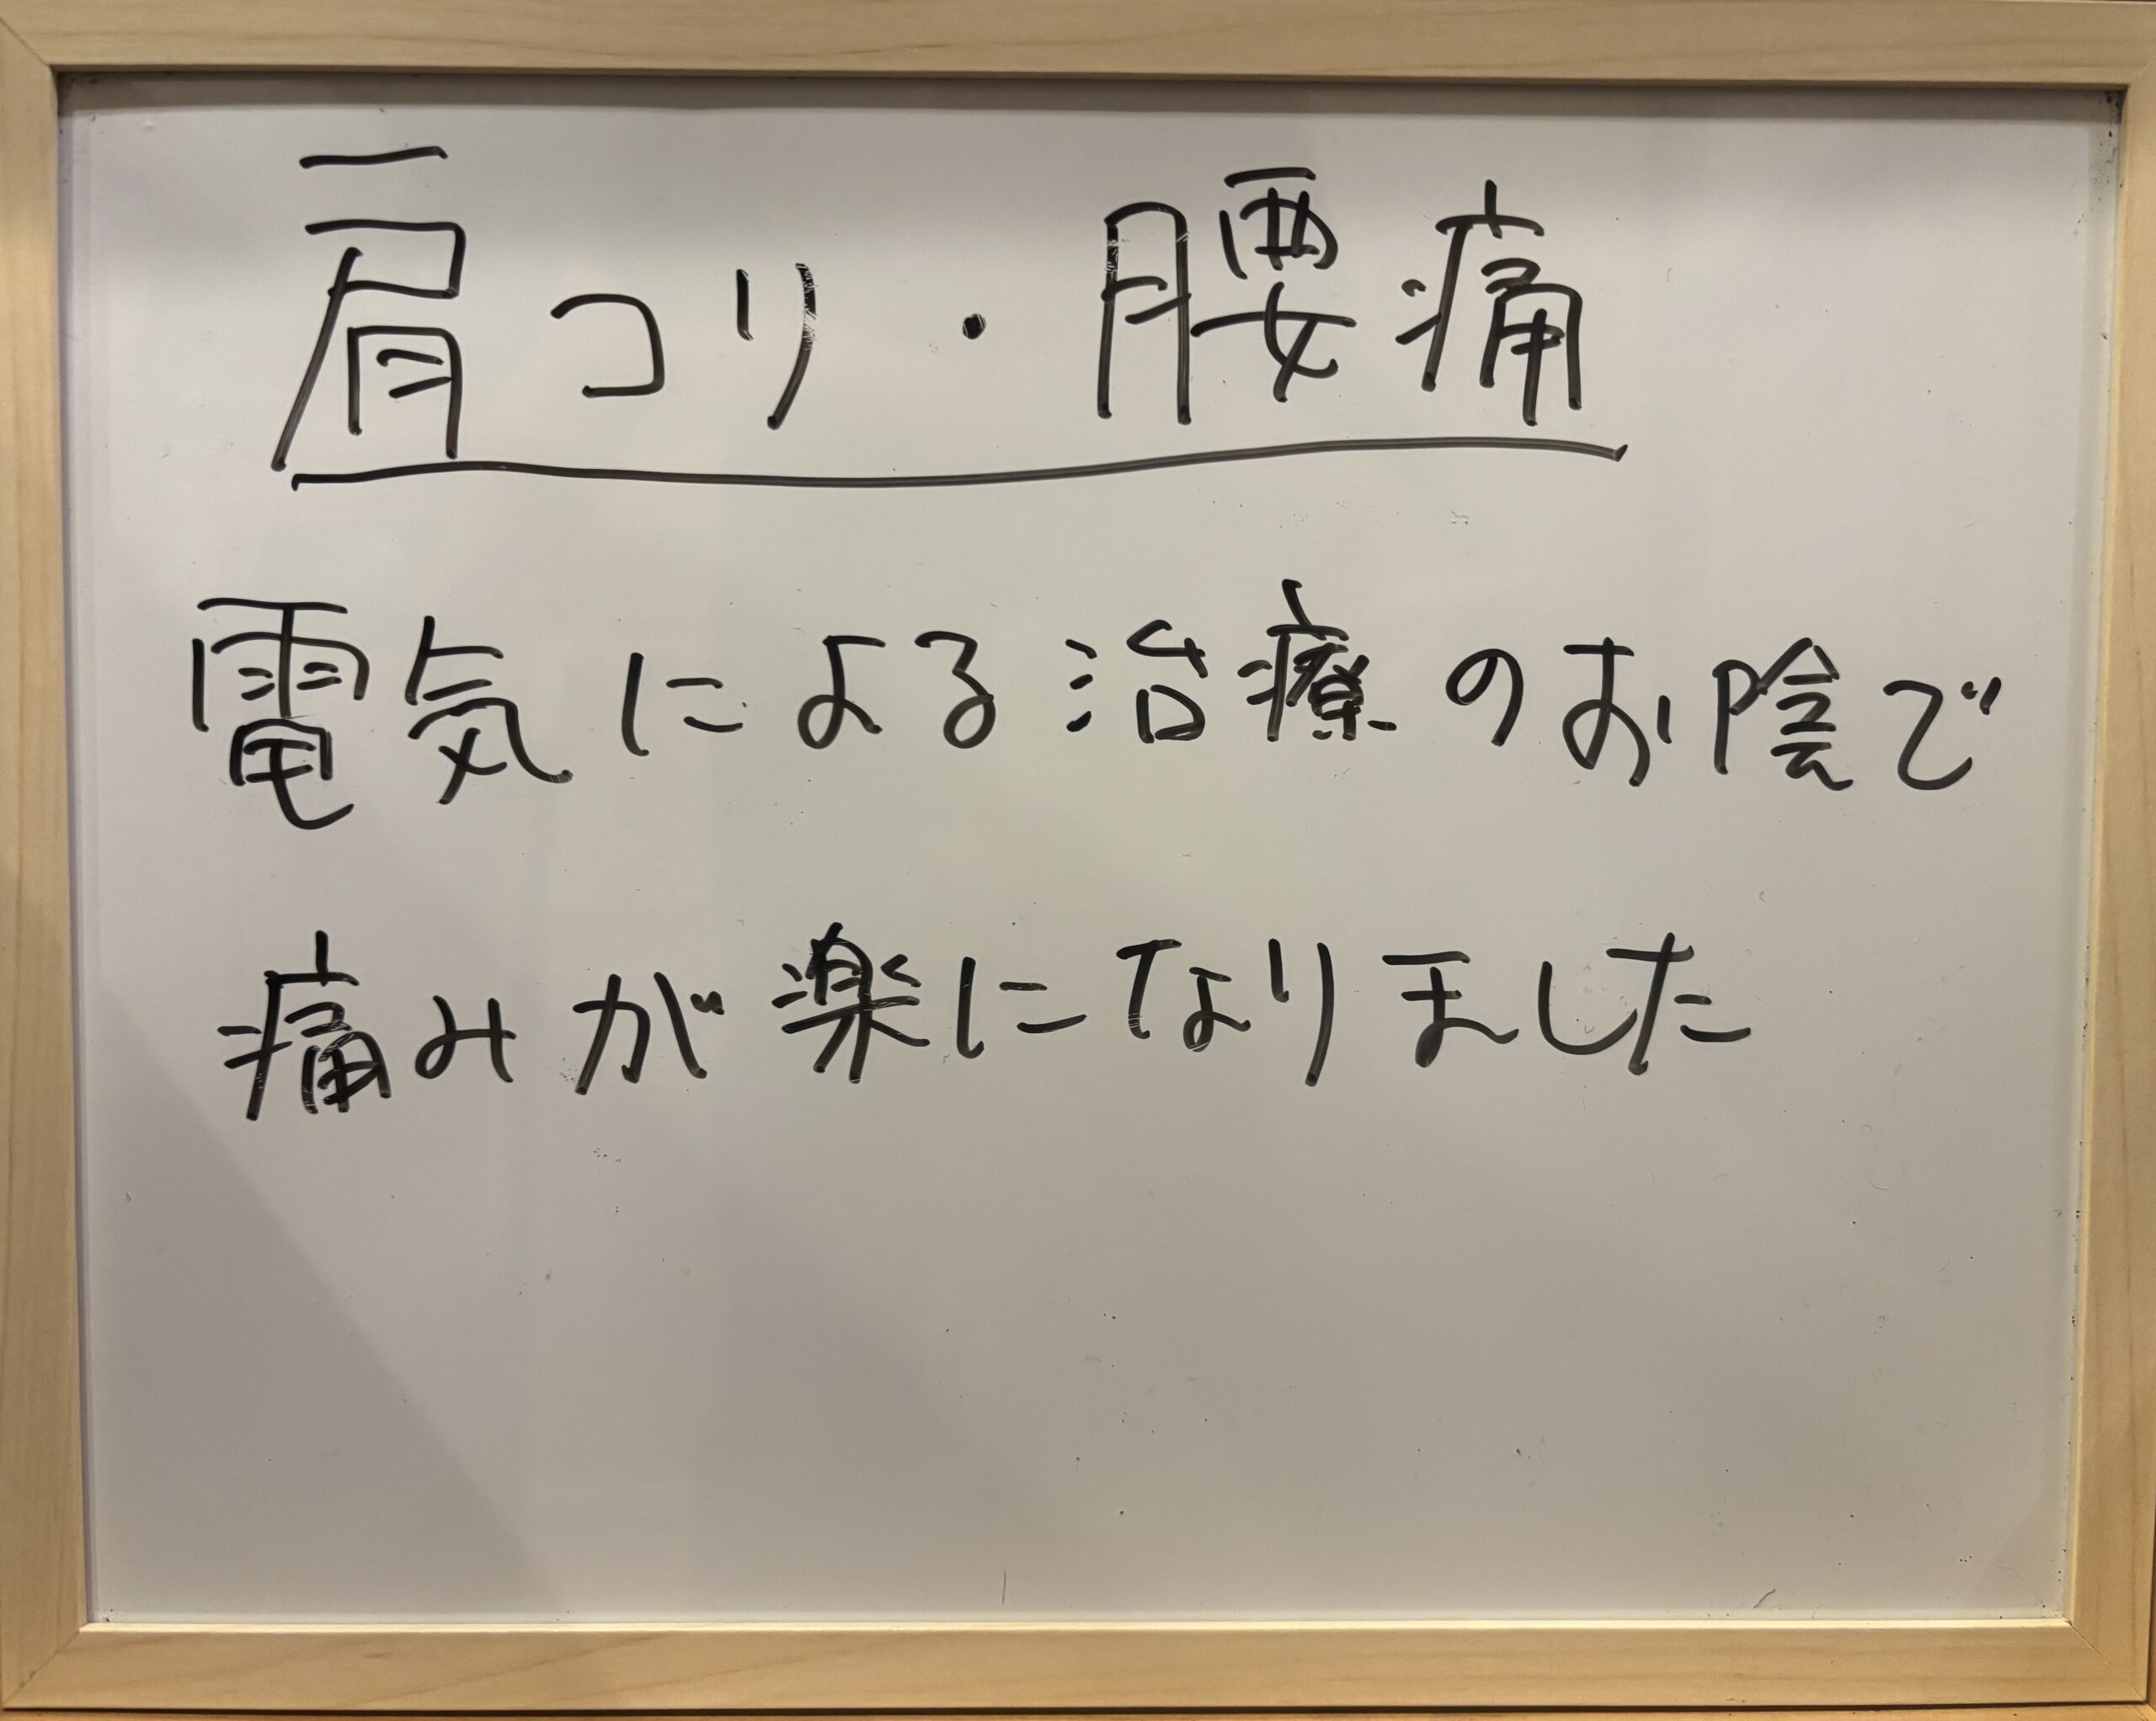 肩コリ・腰痛
電気による治療のお陰で
痛みが楽になりました